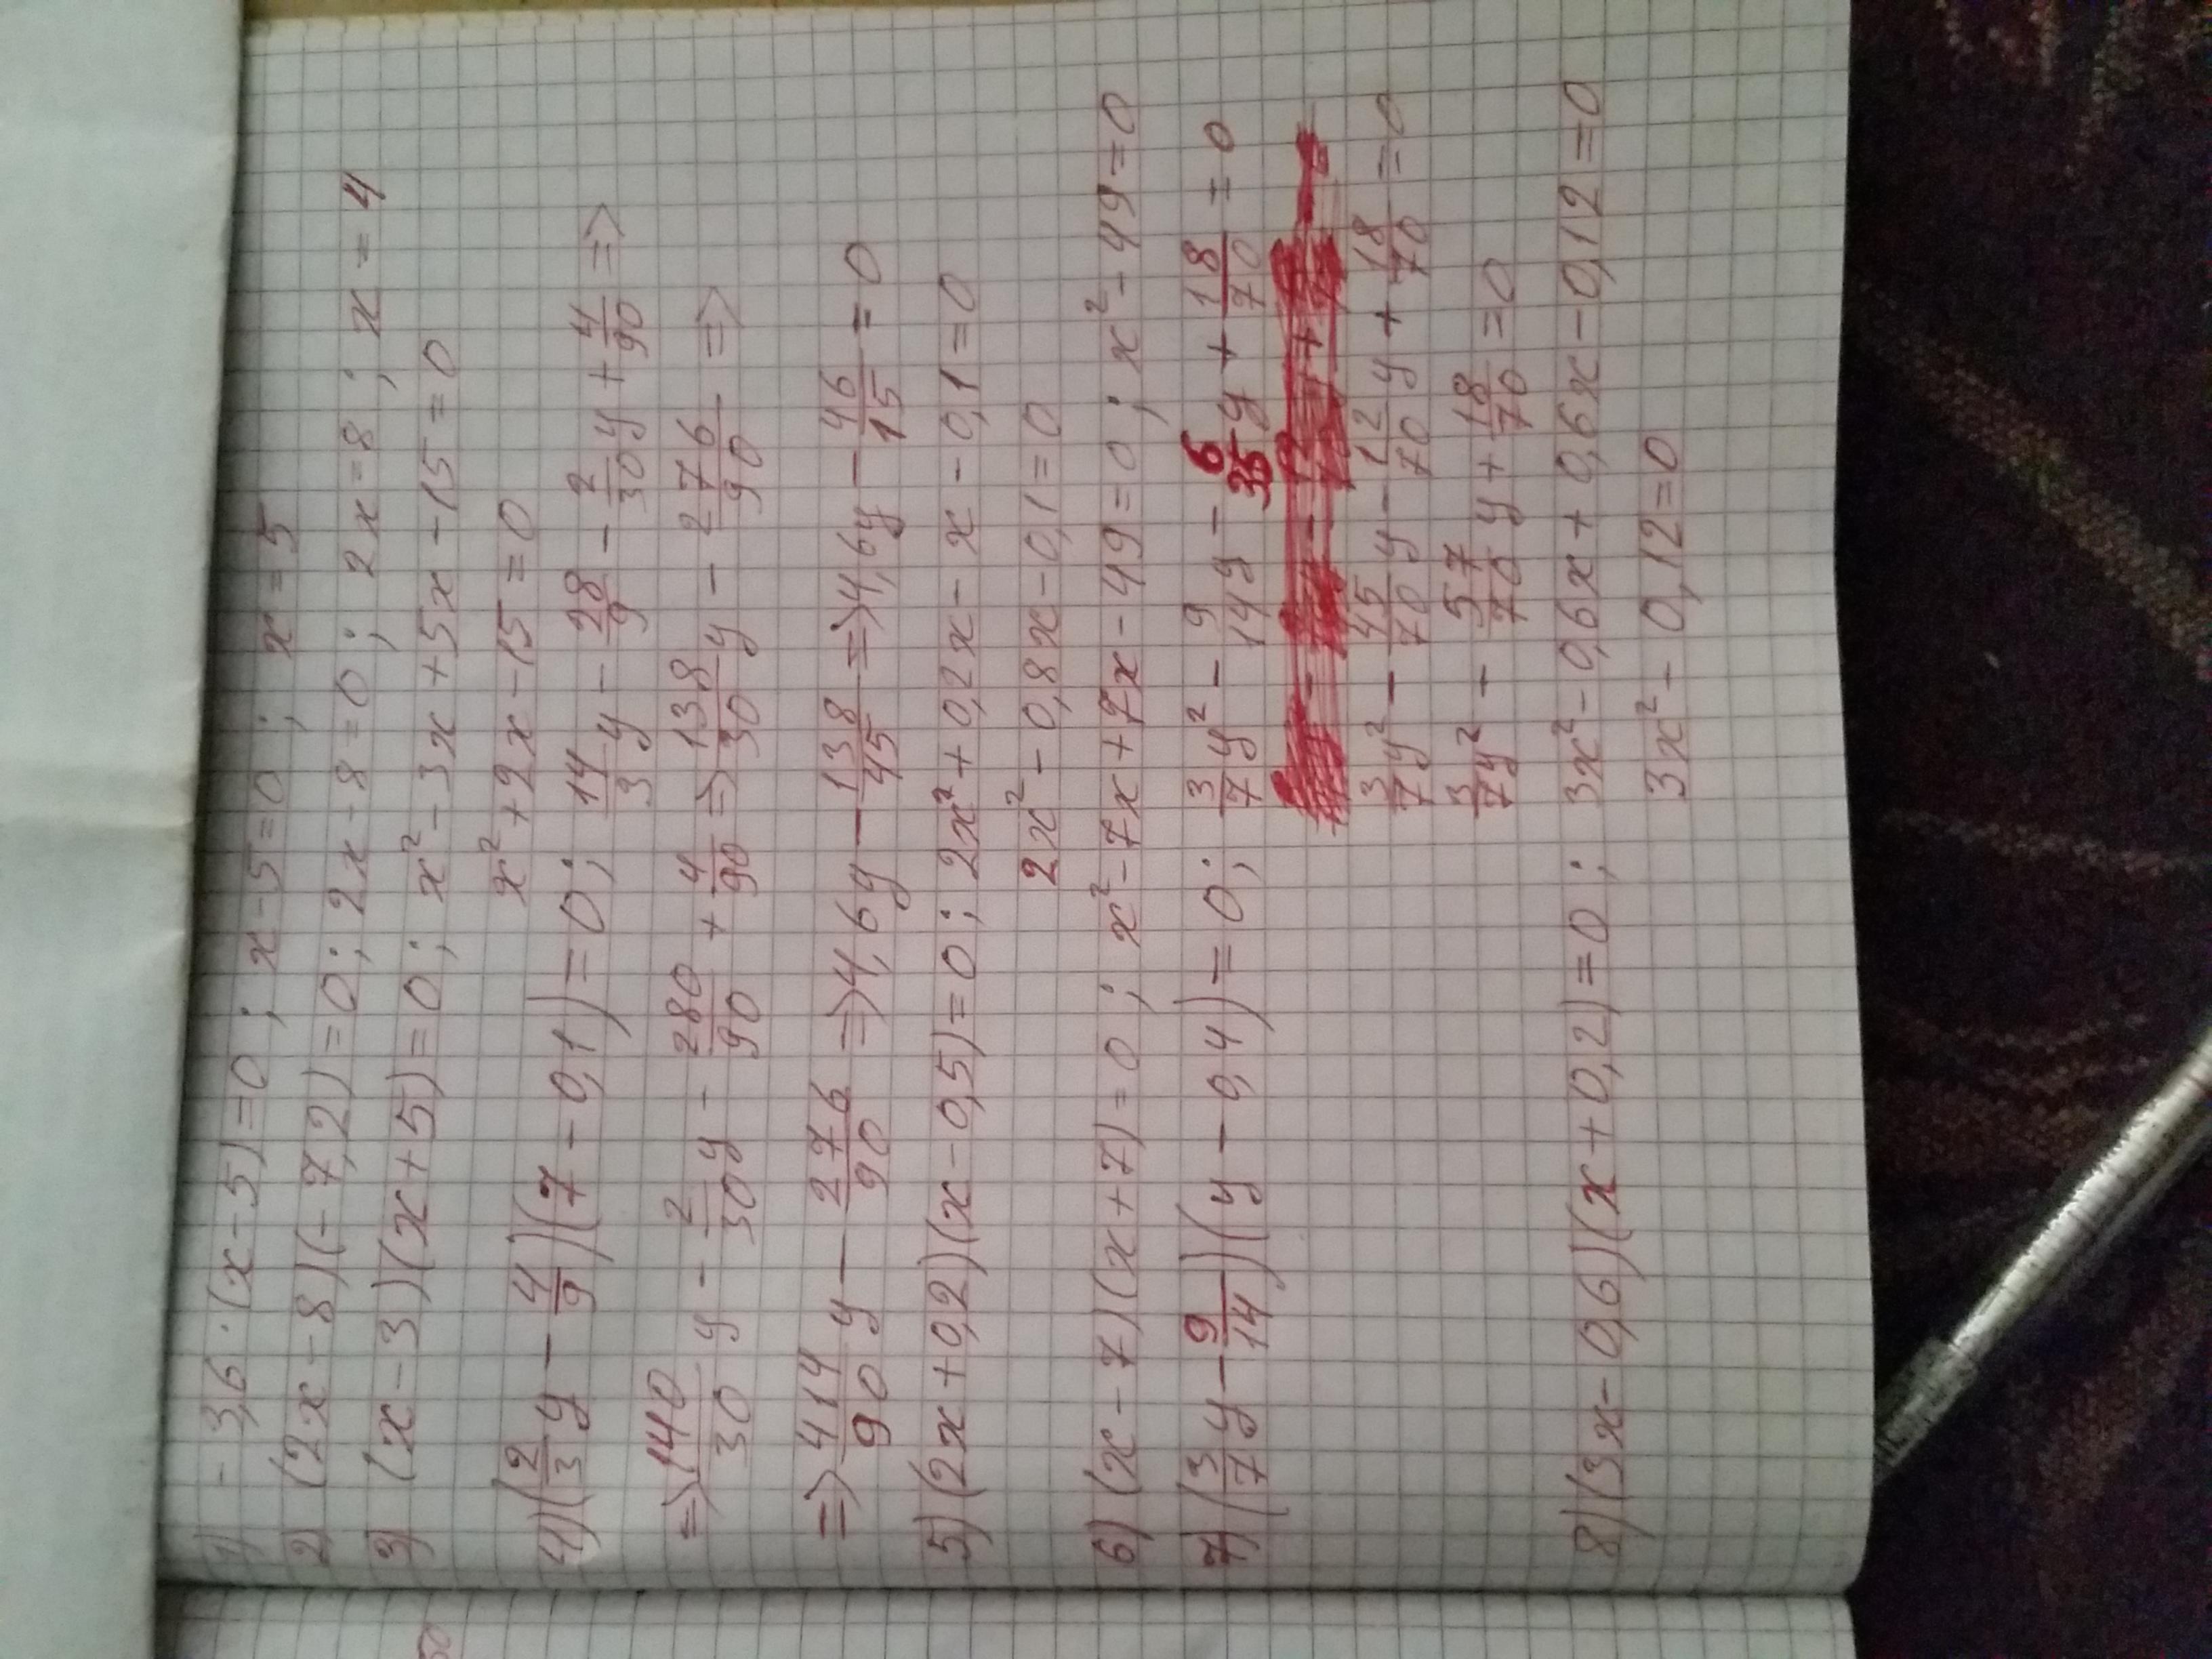 1) -3,6·(x-5)=0; x-5=0; x=5
2) (2x-8)(-7,2)=0; 2x-8=0; 2x=8; x=4
3) (x-3)(x+5)=0; x²-3x+5x-15=0
x²+2x-15=0
4) (2/3 y - 4/9)(7-0,1)=0; 14/3 y - 28/9 - 2/30 y + 4/90 =>
=> 140/30 y - 2/30 y - 280/90 + 4/90 => 138/30 y - 276/90 =>
=> 414/90 y - 276/90 => 4,6y - 138/45 => 4,6y - 46/15 = 0
5) (2x+0,2)(x-0,5)=0; 2x²+0,2x-x-0,1=0
2x²-0,8x-0,1=0
6) (x-7)(x+7)=0; x²-7x+7x-49=0; x²-49=0
7) (3/7 y - 9/14)(y-0,4)=0; 3/7 y² - 9/14 y - 6/35 y + 18/70 = 0
3/7 y² - 45/70 y - 12/70 y + 18/70 = 0
3/7 y² - 57/70 y + 18/70 = 0
8) (3x-0,6)(x+0,2)=0; 3x²-0,6x+0,6x-0,12=0
3x²-0,12=0